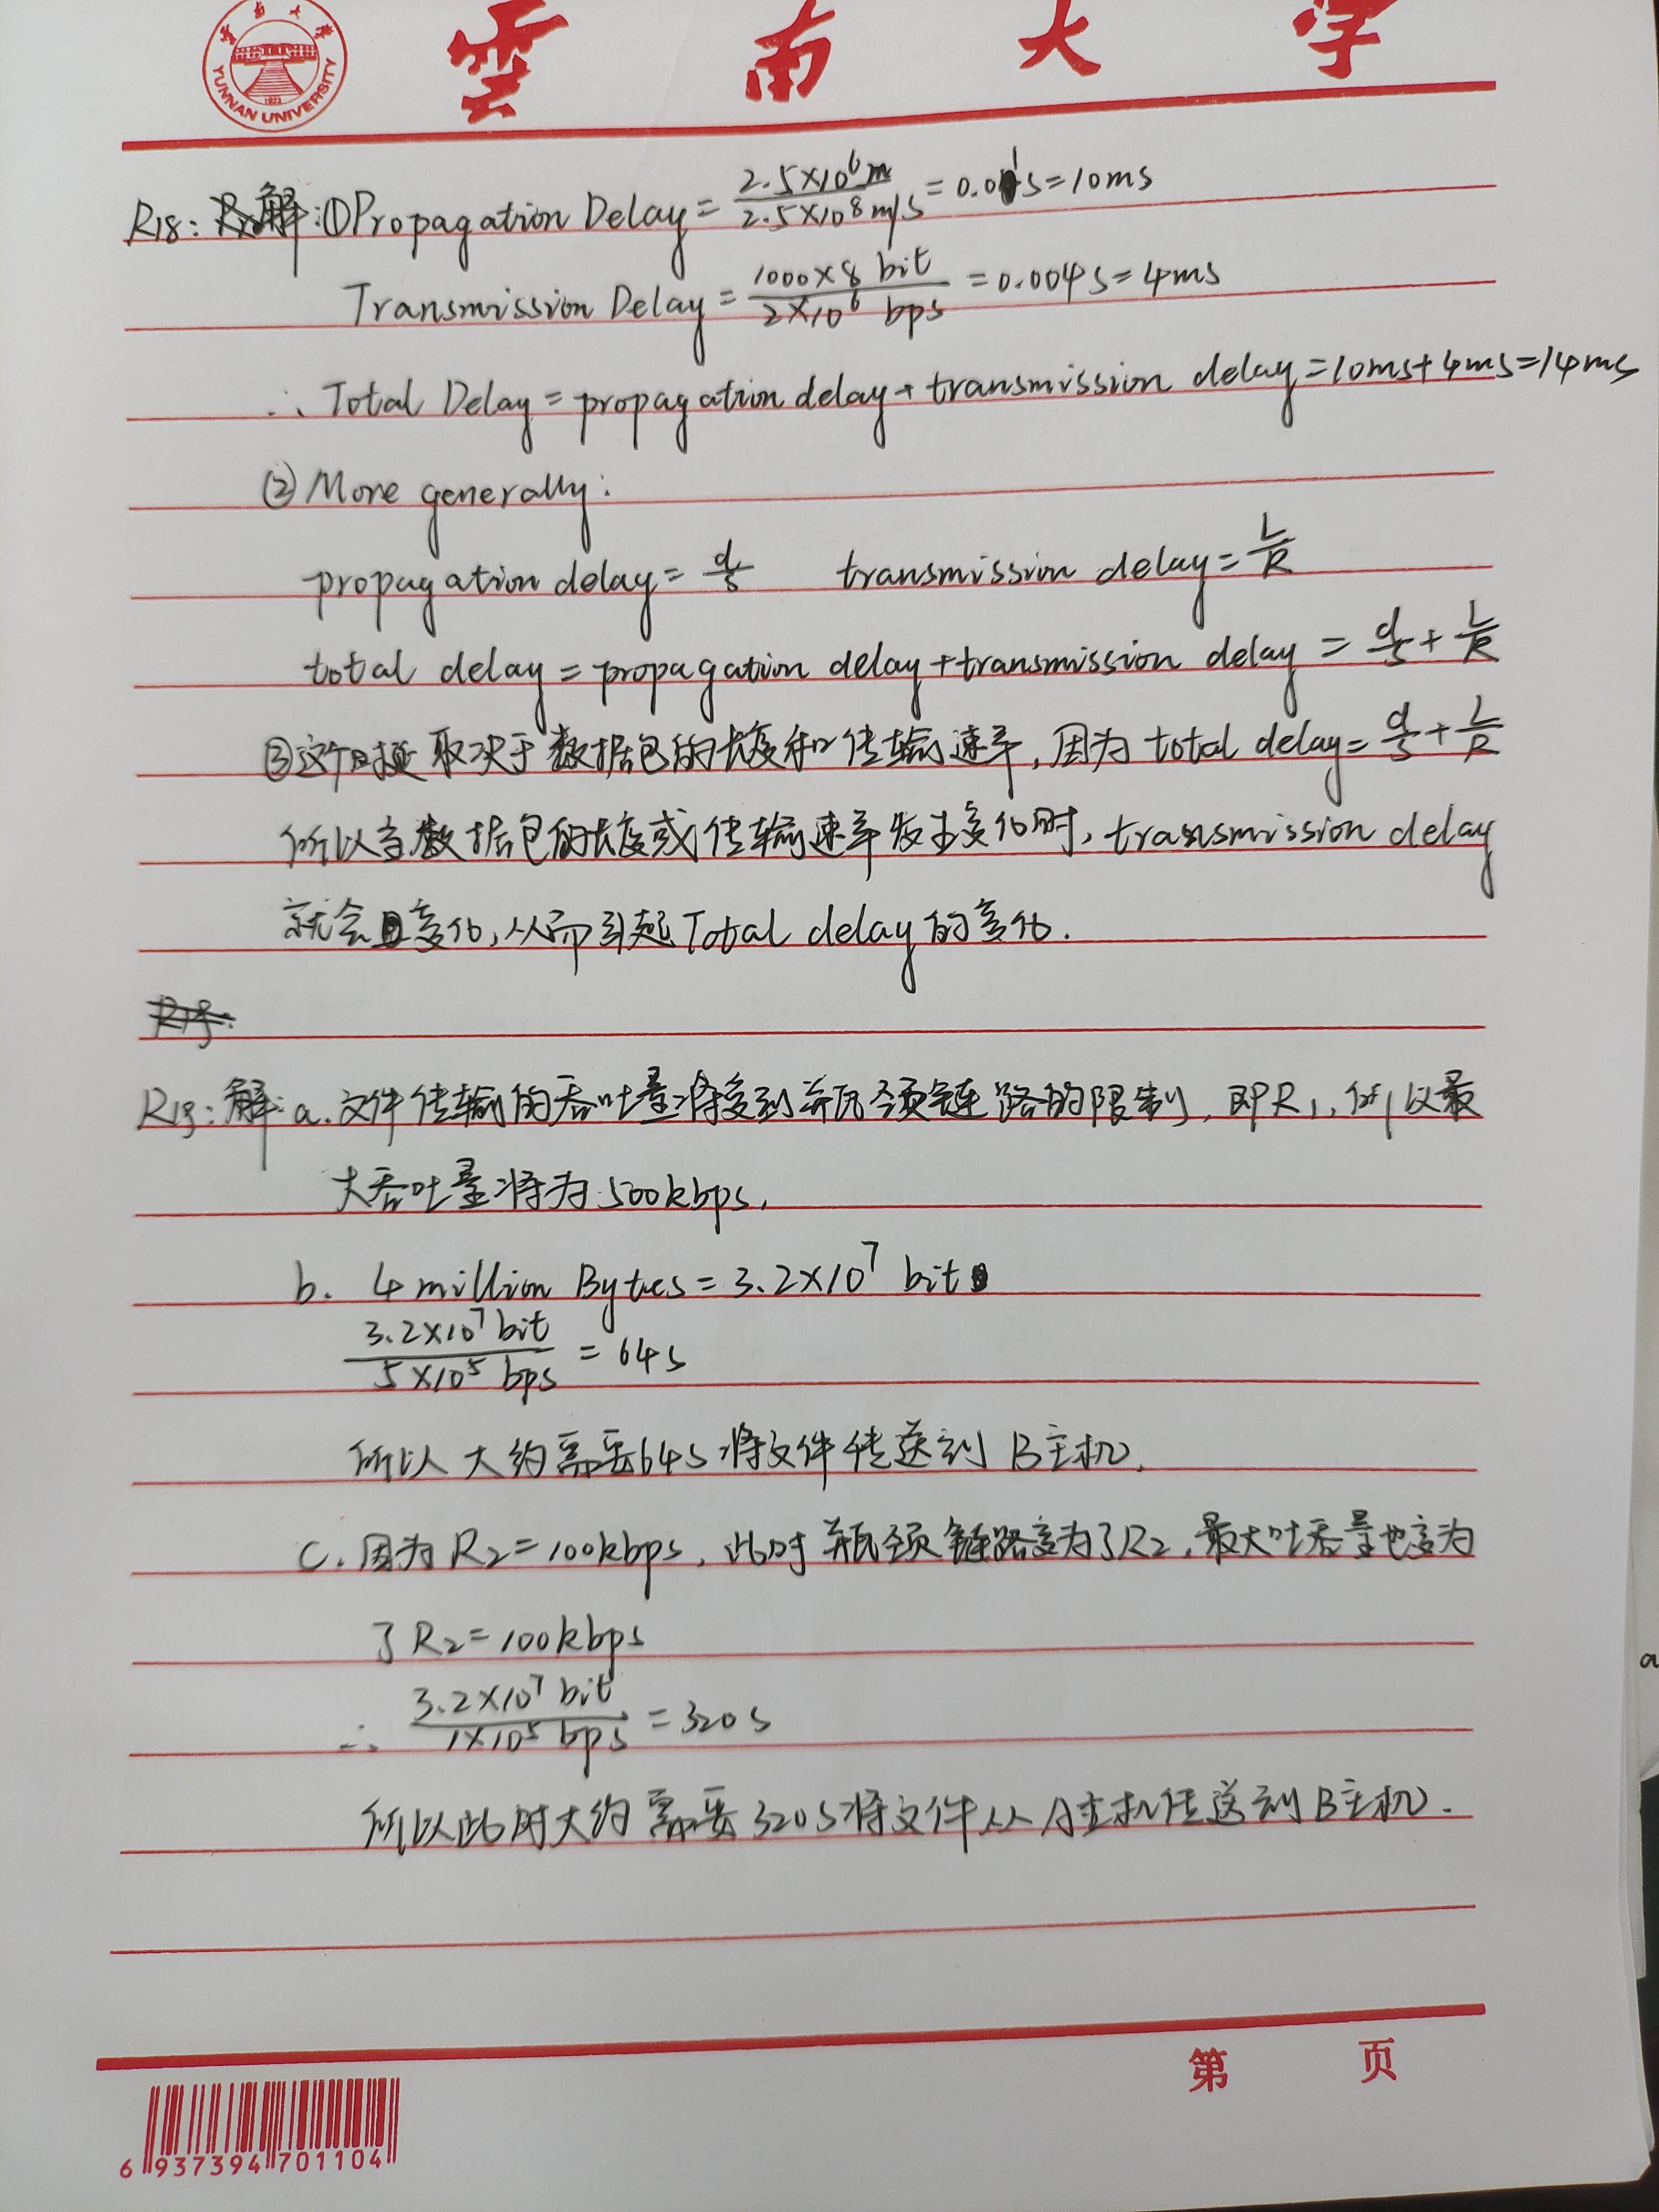 雲南大学
雲南大學
YUNNAN UNIVERSITY
1923
R18: 解: ①Propagation Delay = 2.5×10⁶m / 2.5×10⁸m/s = 0.01s = 10ms
Transmission Delay = 1000×8 bit / 2×10⁶ bps = 0.004s = 4ms
∴ Total Delay = propagation delay + transmission delay = 10ms+4ms=14ms
② More generally:
propagation delay = d/s transmission delay = L/R
total delay = propagation delay + transmission delay = d/s + L/R
③这个时延取决于数据包的长度和传输速率,因为 total delay = d/s + L/R
所以当数据包的长度或传输速率发生变化时, transmission delay
就会变化,从而引起Total delay的变化.
R19:
R19: 解: a. 文件传输的吞吐量将受到瓶颈链路的限制, 即R₁, 所以最
大吞吐量将为500kbps.
b. 4 million Bytes = 3.2×10⁷ bit
3.2×10⁷ bit / 5×10⁵ bps = 64s
所以大约需要64s将文件传送到B主机.
c. 因为R₂=100kbps, 此时瓶颈链路变为了R2, 最大吐吞量也变为
了R₂=100kbps
∴ 3.2×10⁷ bit / 1×10⁵ bps = 320s
所以此时大约需要320s将文件从A主机传送到B主机.
a
第 页
6 937394 701104